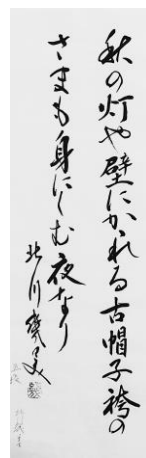 秋の灯や壁にかれる古帽子袴の
さまも身にしむ夜なり